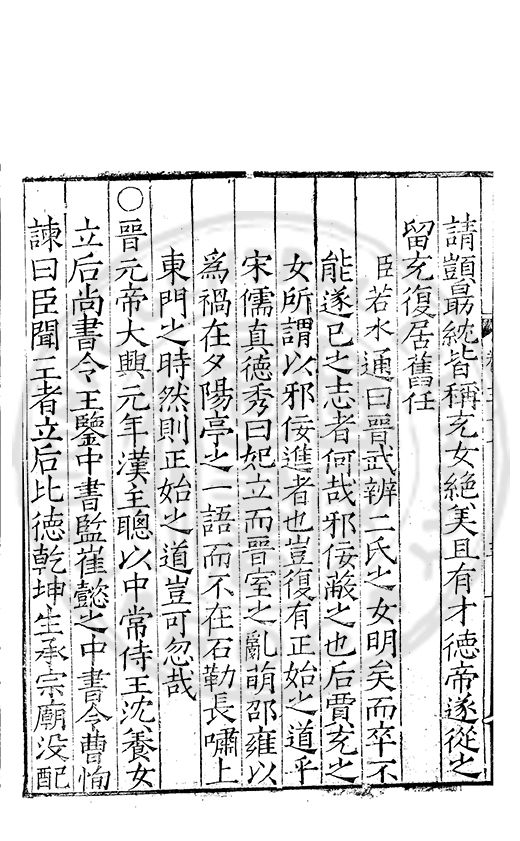 請顗最紞皆稱充女絶美且有才徳帝遂從之
留充復居舊任
臣若水通曰晉武辨二氏之女明矣而卒不
能遂已之志者何哉邪佞蔽之也后賈充之
女所謂以邪佞進者也豈復有正始之道乎
宋儒真徳秀曰妃立而晉室之亂萌邵雍以
爲禍在夕陽亭之一語而不在石勒長嘯上
東門之時然則正始之道豈可忽哉
○晉元帝大興元年漢主聰以中常侍王沈養女
立后尚書令王鑒中書監崔懿之中書令曹恂
諫曰臣聞王者立后比徳乾坤生承宗廟没配